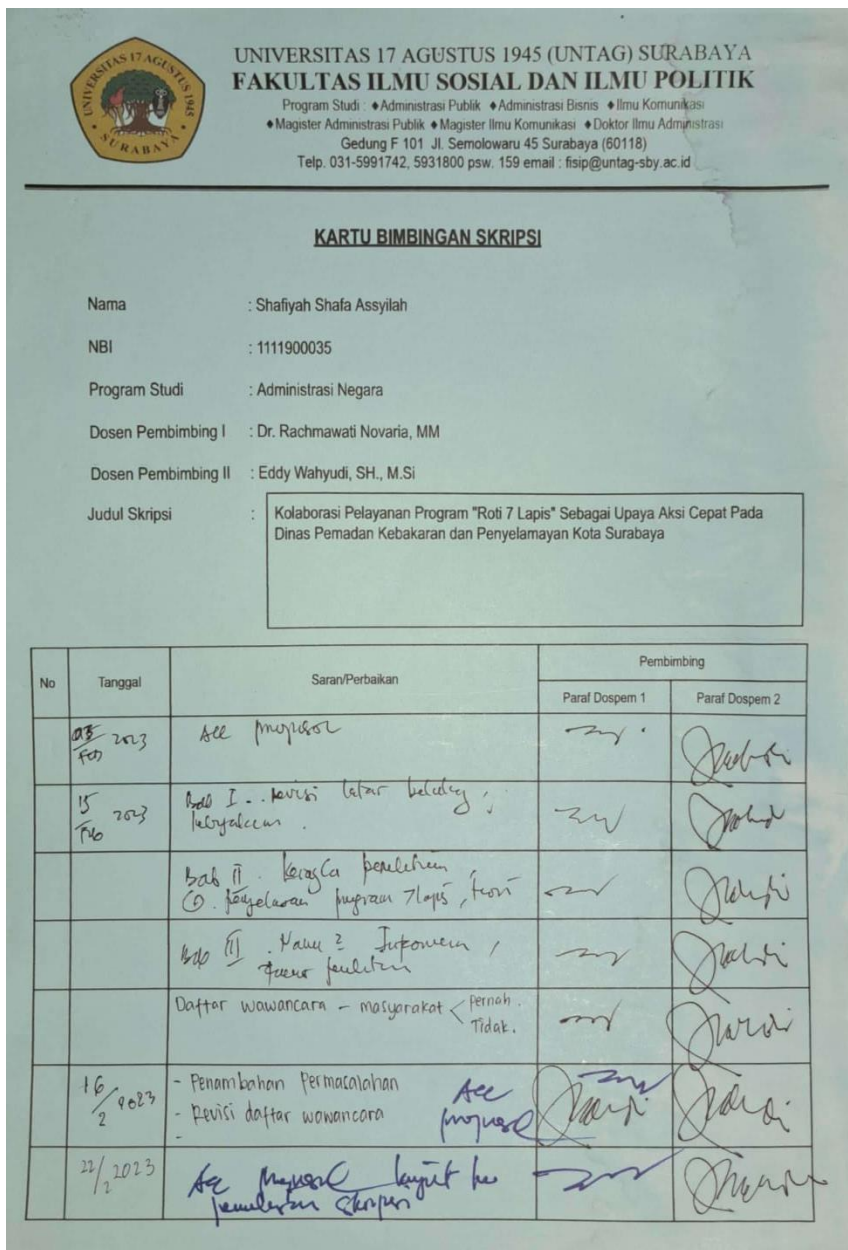 UNIVERSITAS 17 AGUSTUS 1945
SURABAYA
UNIVERSITAS 17 AGUSTUS 1945 (UNTAG) SURABAYA
FAKULTAS ILMU SOSIAL DAN ILMU POLITIK
Program Studi : ♦Administrasi Publik ♦Administrasi Bisnis ♦Ilmu Komunikasi
♦Magister Administrasi Publik ♦Magister Ilmu Komunikasi ♦Doktor Ilmu Administrasi
Gedung F 101 Jl. Semolowaru 45 Surabaya (60118)
Telp. 031-5991742, 5931800 psw. 159 email : fisip@untag-sby.ac.id
KARTU BIMBINGAN SKRIPSI
Nama : Shafiyah Shafa Assyilah
NBI : 1111900035
Program Studi : Administrasi Negara
Dosen Pembimbing I : Dr. Rachmawati Novaria, MM
Dosen Pembimbing II : Eddy Wahyudi, SH., M.Si
Judul Skripsi : Kolaborasi Pelayanan Program "Roti 7 Lapis" Sebagai Upaya Aksi Cepat Pada
Dinas Pemadan Kebakaran dan Penyelamayan Kota Surabaya
No Tanggal Saran/Perbaikan Pembimbing
Paraf Dospem 1 Paraf Dospem 2
2023 Acc proposal
15 Feb 2023 Bab I revisi latar belakang
Bab II. Kerangka penelitian
program 7 lapis, teori
Bab III
Daftar wawancara - masyarakat < Pernah.
Tidak.
16/2 2023 - Penambahan Permasalahan
- Revisi daftar wawancara
Acc proposal
22/2 2023 Acc proposal lanjut ke
penulisan skripsi